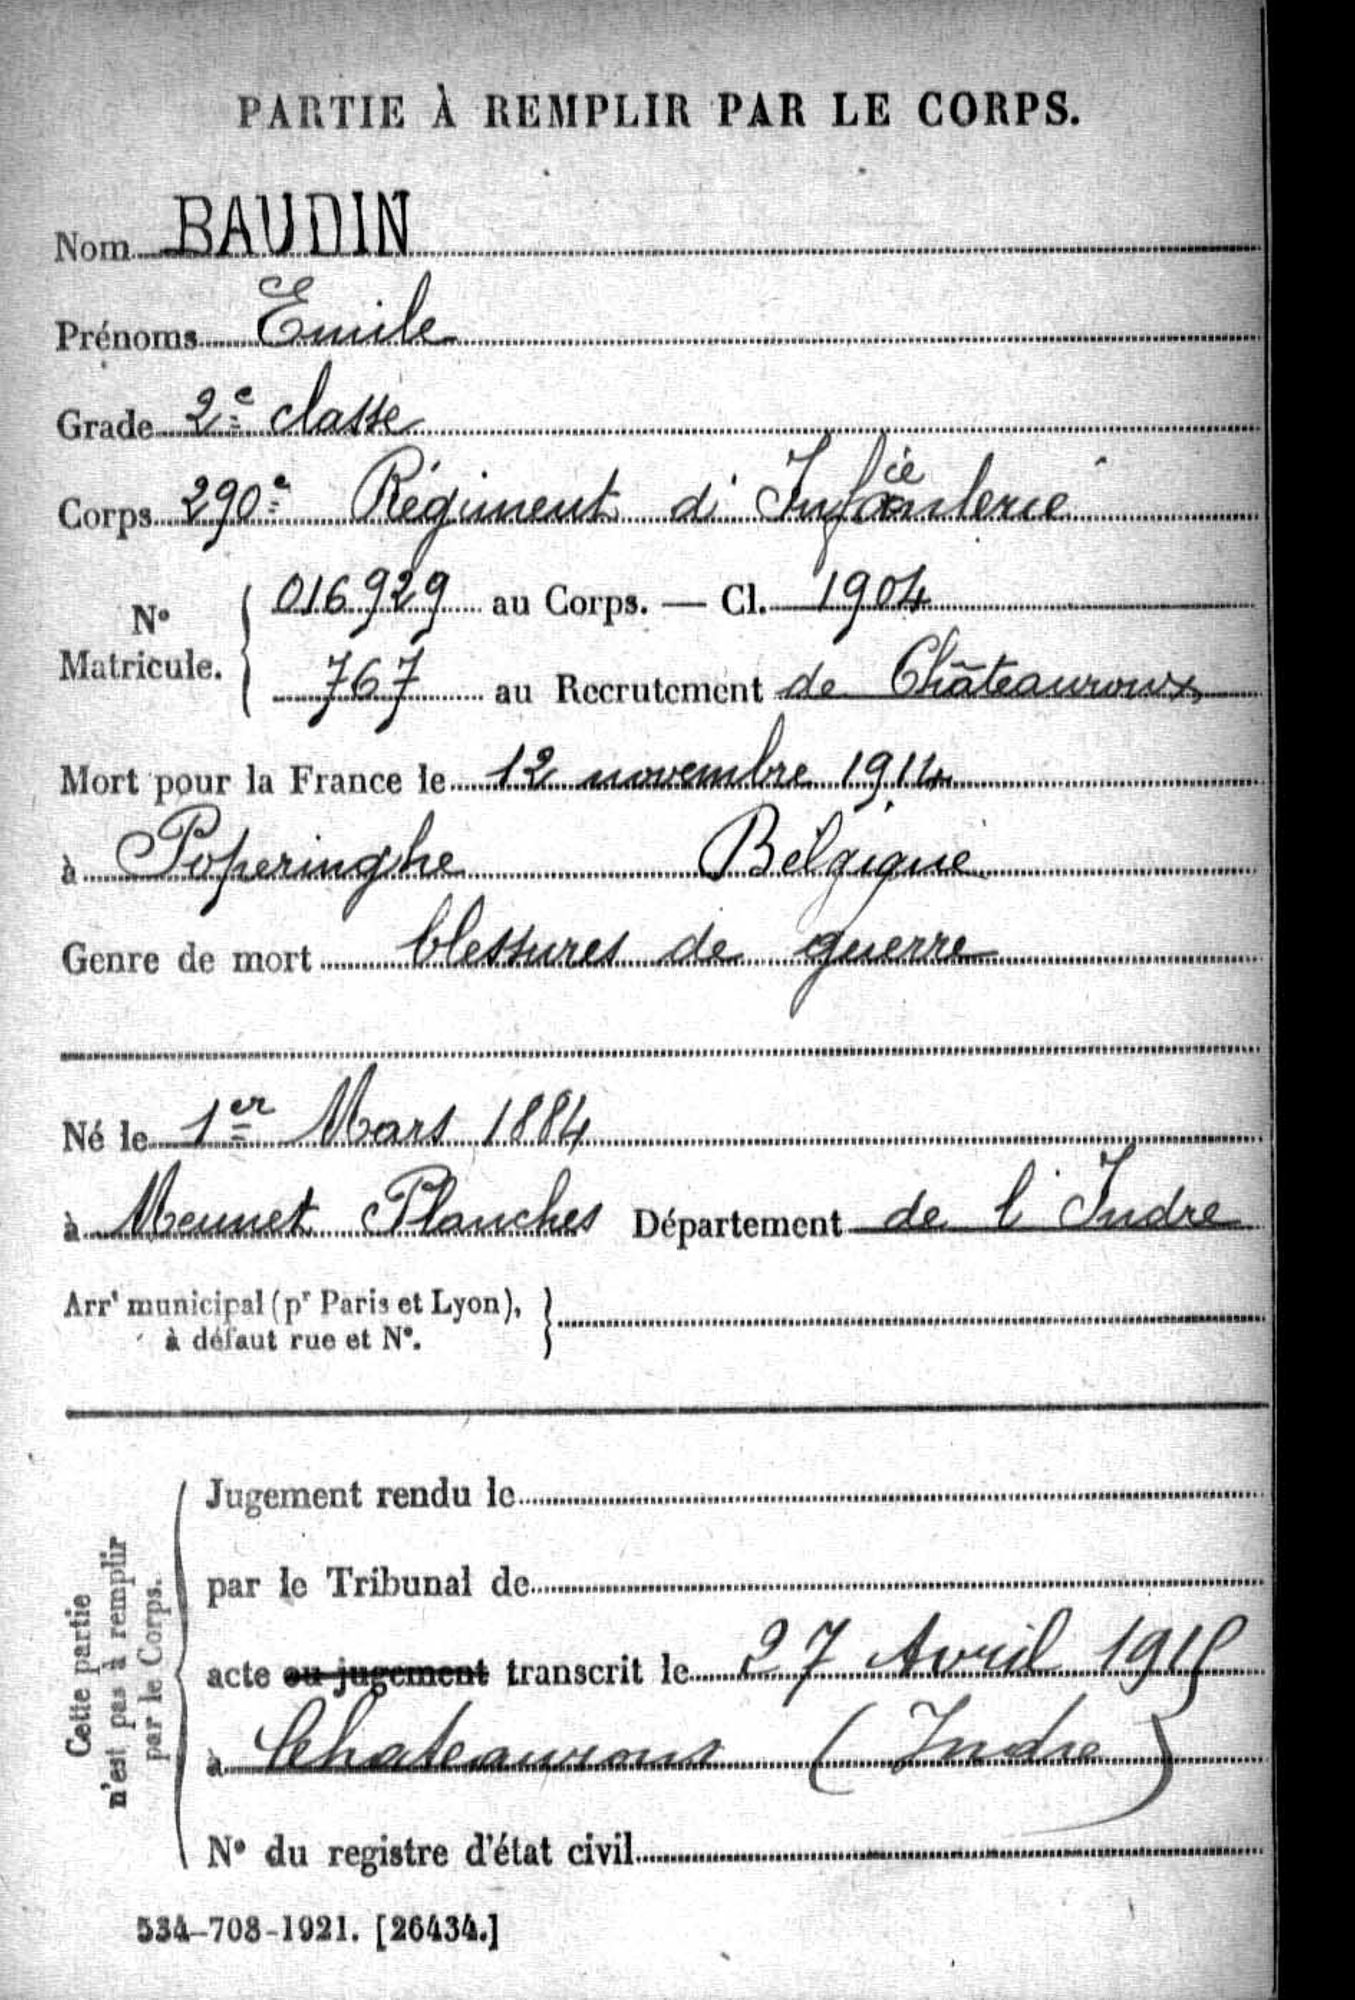 PARTIE À REMPLIR PAR LE CORPS.
Nom BAUDIN
Prénoms Emile
Grade 2e classe
Corps 290e Régiment d'Infanterie
ie
016929 au Corps. — Cl. 1904
N°
Matricule.
767 au Recrutement de Châteauroux
Mort pour la France le 12 novembre 1914
à Poperinghe Belgique
Genre de mort blessures de guerre
Né le 1er Mars 1884
à Meunet Planches Département de l'Indre
Arrt municipal (pr Paris et Lyon),
à défaut rue et N°.
Cette partie
n'est pas à remplir
par le Corps.
Jugement rendu le
par le Tribunal de
acte ou jugement transcrit le 27 Avril 1915
à Chateauroux (Indre)
N° du registre d'état civil
534-708-1921. [26434.]